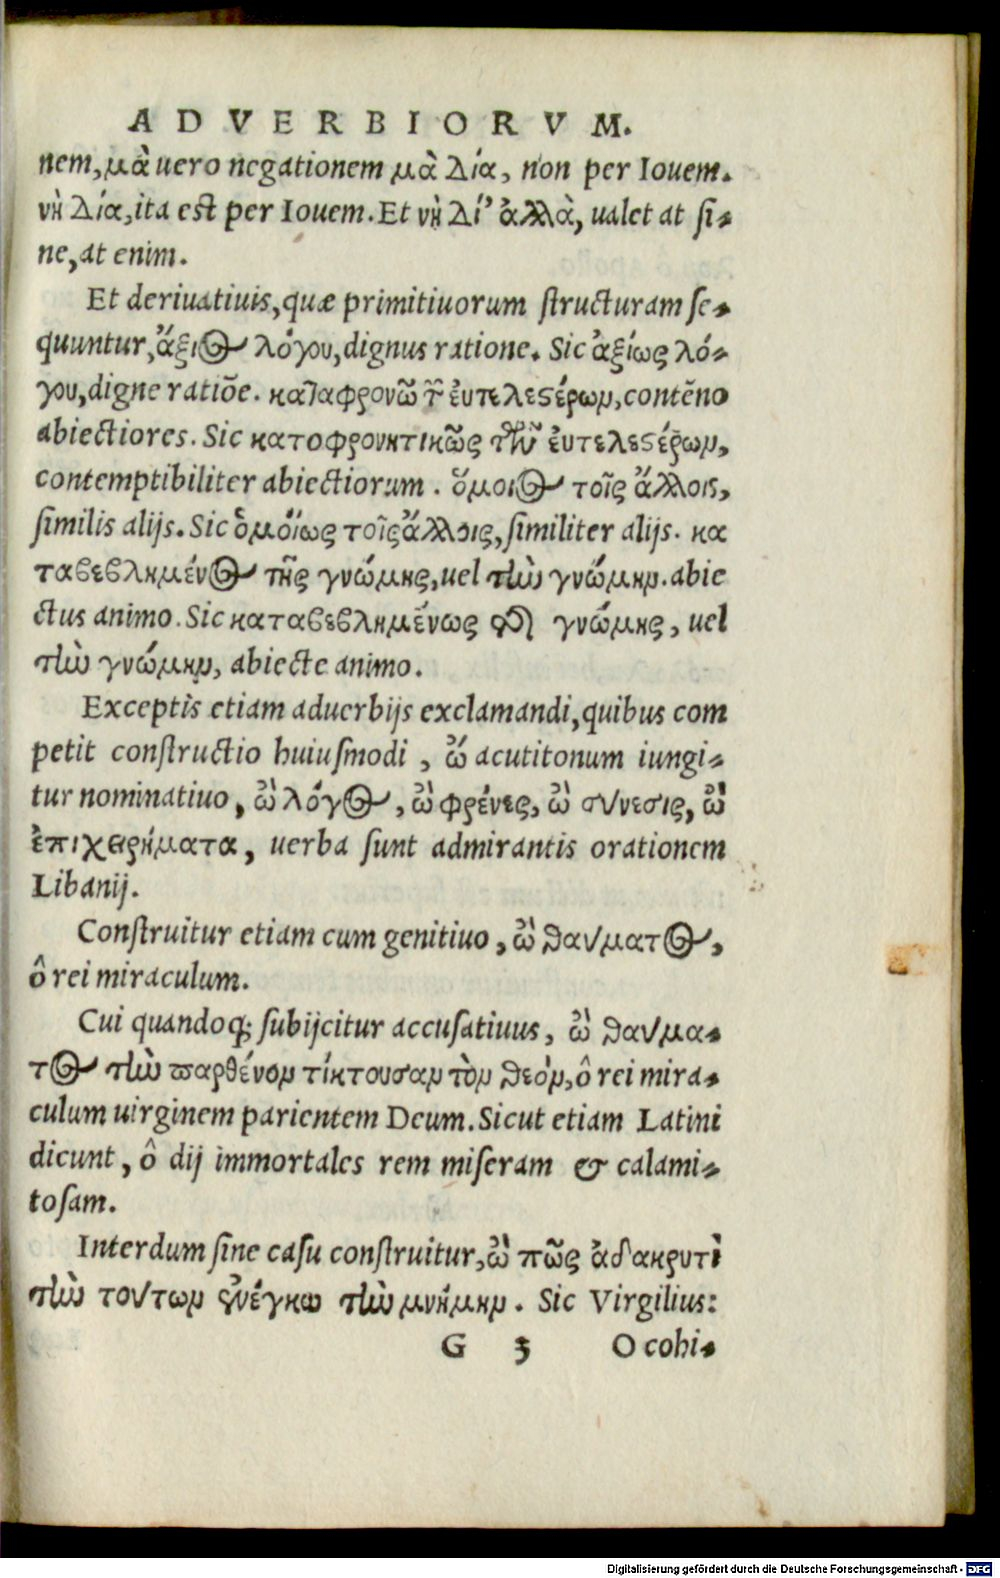 ADVERBIORVM.
nem, μὰ uero negationem μὰ Δία, non per Iouem.
νὴ Δία, ita est per Iouem. Et νὴ Δί' ἀλλὰ, ualet at si-
ne, at enim.
Et deriuatiuis, quæ primitiuorum structuram se-
quuntur, ἄξιος λόγου, dignus ratione. Sic ἀξίως λό-
γου, digne ratiõe. καταφρονῶ τῶν ἐυτελεστέρων, contẽno
abiectiores. Sic κατοφρονητικῶς τῶν ἐυτελεστέρων,
contemptibiliter abiectiorum. ὅμοιος τοῖς ἄλλοις,
similis alijs. Sic ὁμοίως τοῖς ἄλλοις, similiter alijs. κα
ταβεβλημένος τῆς γνώμης, uel τὴν γνώμην. abie
ctus animo. Sic καταβεβλημένως τῆς γνώμης, uel
τὴν γνώμην, abiecte animo.
Exceptis etiam aduerbijs exclamandi, quibus com
petit constructio huiusmodi, ὤ acutitonum iungi-
tur nominatiuo, ὢ λόγος, ὢ φρένες, ὢ σύνεσις, ὢ
ἐπιχειρήματα, uerba sunt admirantis orationem
Libanij.
Construitur etiam cum genitiuo, ὢ θαύματος,
ô rei miraculum.
Cui quandoq; subijcitur accusatiuus, ὢ θαύμα-
τος τὴν παρθένον τίκτουσαν τὸν θεόν, ô rei mira-
culum uirginem parientem Deum. Sicut etiam Latini
dicunt, ô dij immortales rem miseram & calami-
tosam.
Interdum sine casu construitur, ὢ πῶς ἀδακρυτὶ
τὴν τούτων ὑνέγκω τὴν μνήμην. Sic Virgilius:
G 3 O cohi-
Digitalisierung gefördert durch die Deutsche Forschungsgemeinschaft - DFG